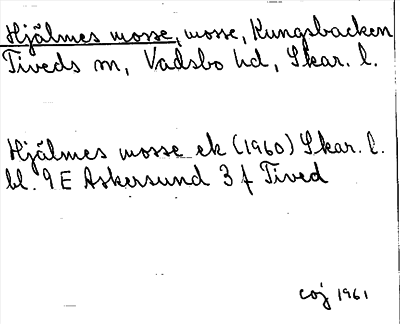 Hjälmes mosse, mosse, Kungsbacken
Tiveds sn, Vadsbo hd, Skar. l.
Hjälmes mosse ek (1960) Skar. l.
bl. 9 E Askersund 3 f Tived
coj 1961